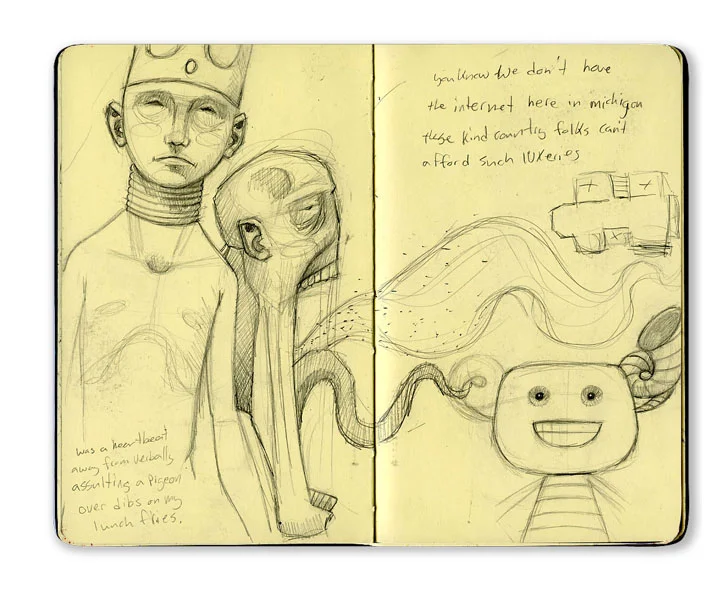 was a heartbeat
away from verbally
assulting a pigeon
over dibs on my
lunch fries.
you know we don't have
the internet here in michigan
these kind country folks can't
afford such luxeries